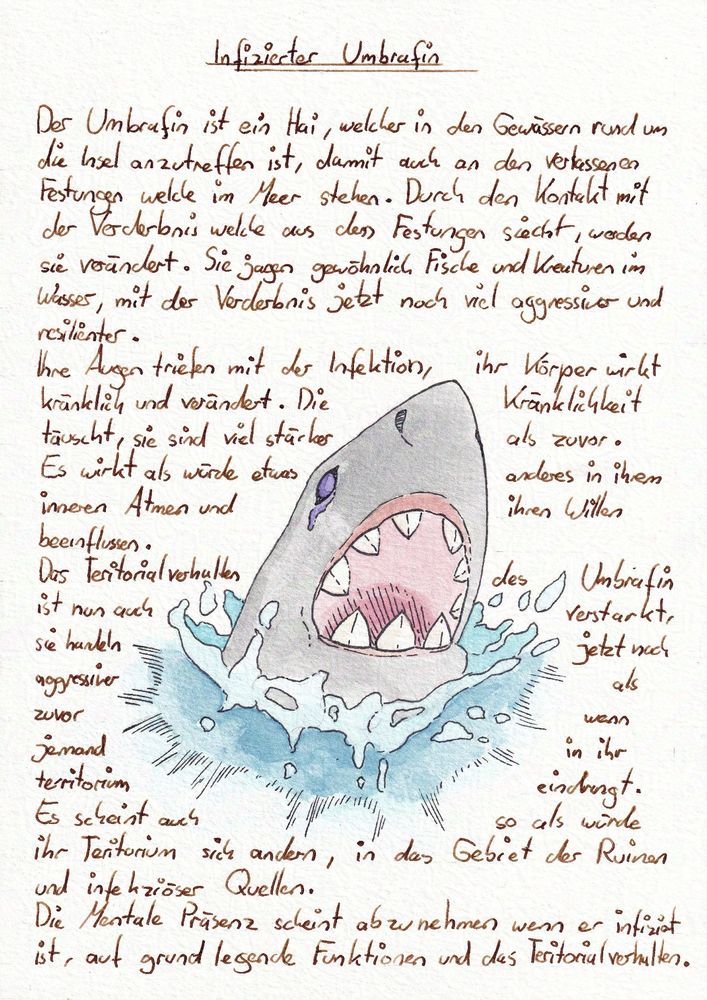 Infizierter Umbrafin
Der Umbrafin ist ein Hai, welcher in den Gewässern rund um
die Insel anzutreffen ist, damit auch an den verlassenen
Festungen welche im Meer stehen. Durch den Kontakt mit
der Verderbnis welche aus den Festungen siecht, werden
sie verändert. Sie jagen gewöhnlich Fische und Kreaturen im
Wasser, mit der Verderbnis jetzt noch viel aggressiver und
resilienter.
Ihre Augen triefen mit der Infektion, ihr Körper wirkt
kränklich und verändert. Die Kränklichkeit
täuscht, sie sind viel stärker als zuvor.
Es wirkt als würde etwas anderes in ihrem
inneren Atmen und ihren Willen
beeinflussen.
Das Teritorialverhalten des Umbrafin
ist nun auch verstarkt,
sie handeln jetzt noch
aggressiver als
zuvor wenn
jemand in ihr
territorium eindrungt.
Es scheint auch so als würde
ihr Teritorium sich andern, in das Gebiet der Ruinen
und infekziöser Quellen.
Die Mentale Präsenz scheint abzunehmen wenn er infiziert
ist, auf grund legende Funktionen und das Teritorialverhalten.